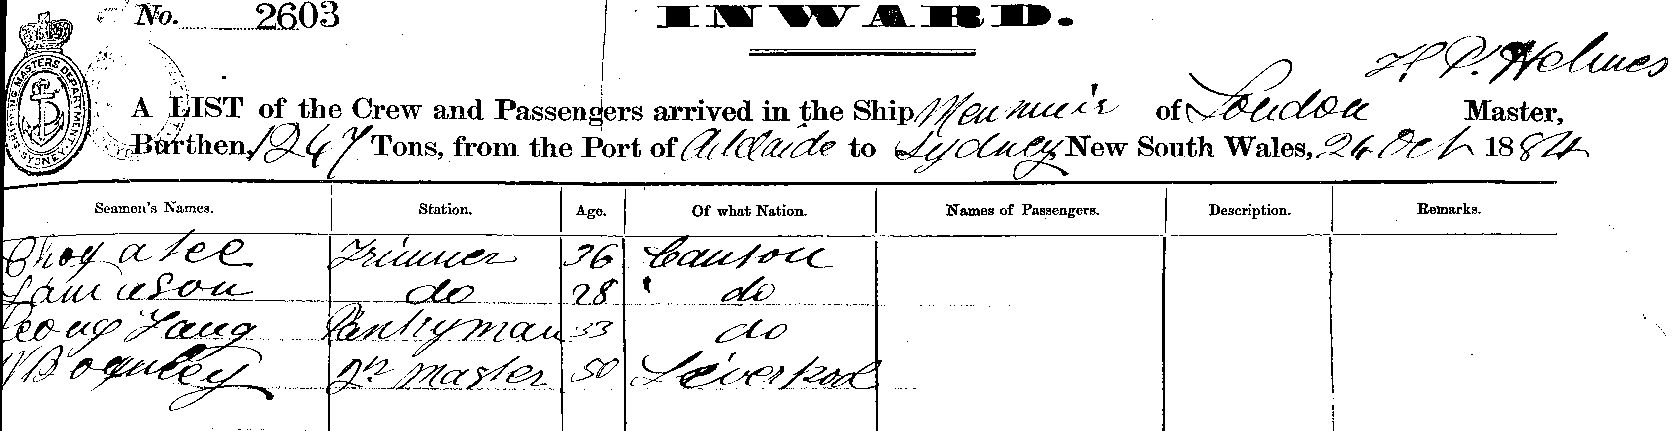 No. 2603
INWARD.
SHIPPING MASTERS DEPARTMENT SYDNEY
H. P. Holmes
A LIST of the Crew and Passengers arrived in the Ship Menmuir of London Master,
Burthen, 1247 Tons, from the Port of Adelaide to Sydney New South Wales, 26 Oct 1884
Seamen's Names. Station. Age. Of what Nation. Names of Passengers. Description. Remarks.
Trimmer 36 Canton
do 28 do
Pantryman 33 do
Qr Master 50 Liverpool